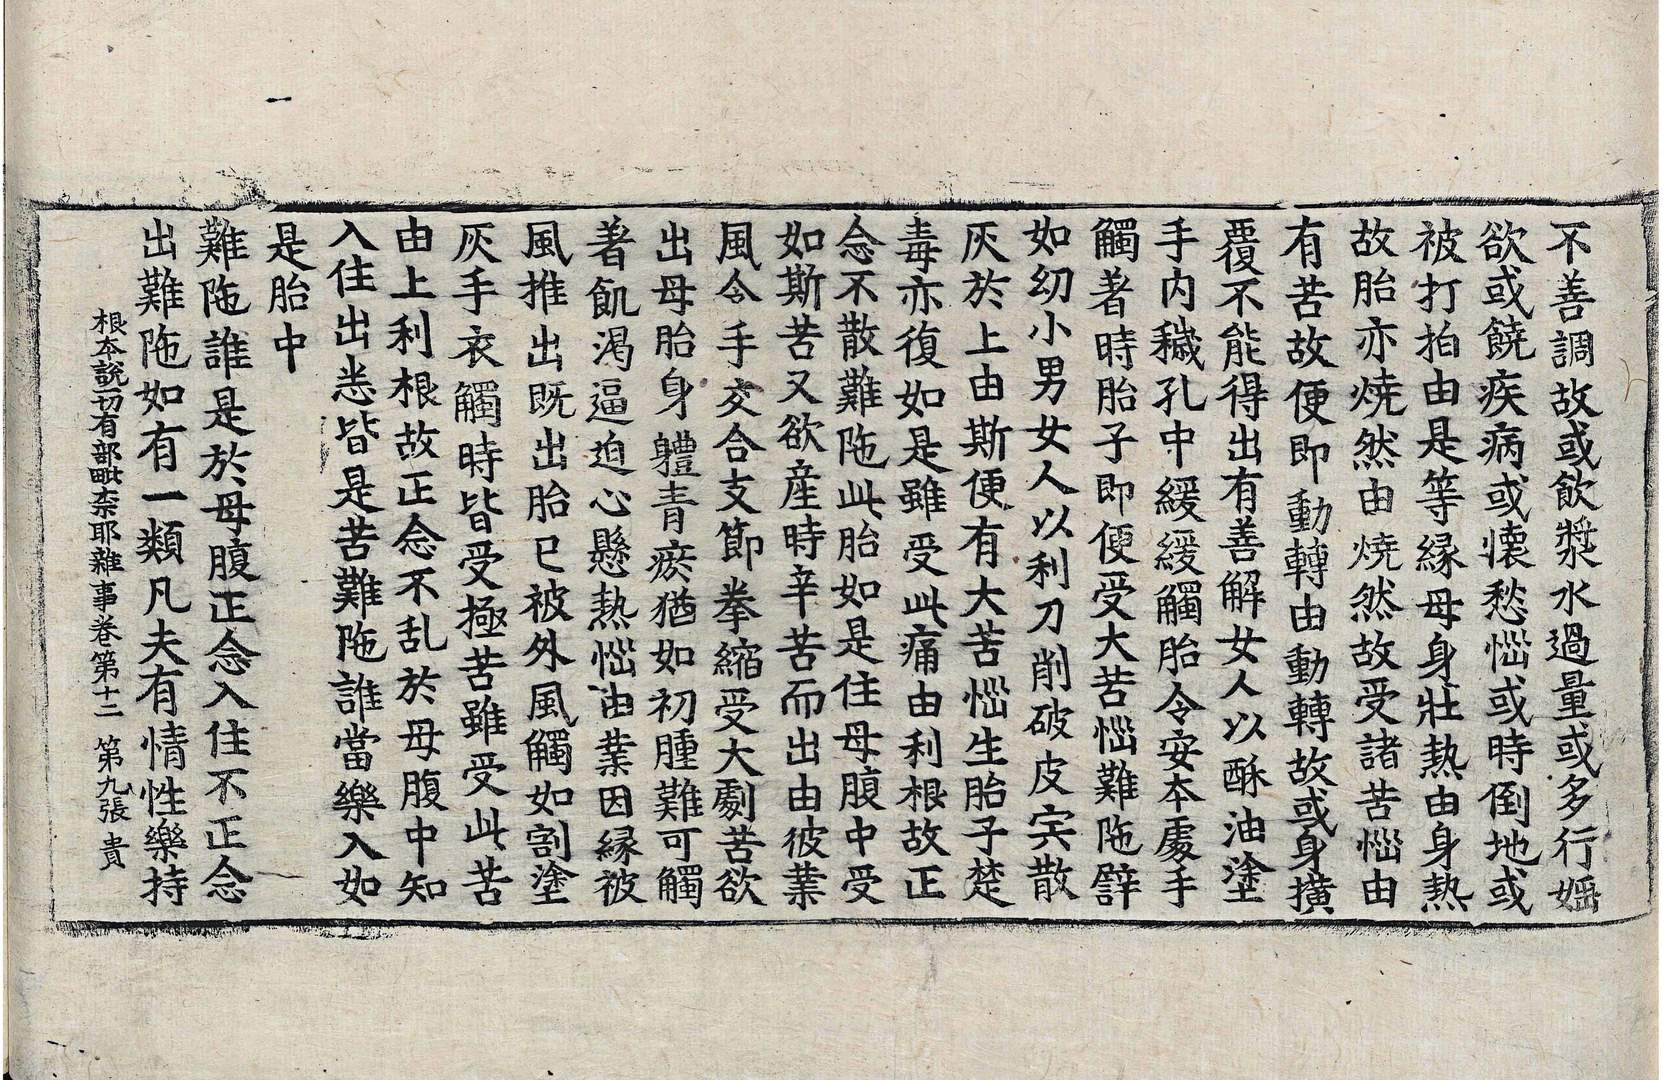 不善調故或飲漿水過量或多行婬
欲或饒疾病或懷愁惱或時倒地或
被打拍由是等縁母身壯熱由身熱
故胎亦燒然由燒然故受諸苦惱由
有苦故便即動轉由動轉故或身擴
覆不能得出有善解女人以酥油塗
手內穢孔中緩緩觸胎令安本處手
觸著時胎子即便受大苦惱難陁譬
如幼小男女人以利刀削破皮宍散
灰於上由斯便有大苦惱生胎子楚
毒亦復如是雖受此痛由利根故正
念不散難陁此胎如是住母腹中受
如斯苦又欲産時辛苦而出由彼業
風令手交合支節拳縮受大劇苦欲
出母胎身軆青瘀猶如初腫難可觸
著飢渴逼迫心懸熱惱由業因緣被
風推出既出胎已被外風觸如割塗
灰手衣觸時皆受極苦雖受此苦
由上利根故正念不乱於母腹中知
入住出悉皆是苦難陁誰當樂入如
是胎中
難陁誰是於母腹正念入住不正念
出難陁如有一類凡夫有情性樂持
根本說一切有部毗奈耶雜事卷第十二 第九張 貴